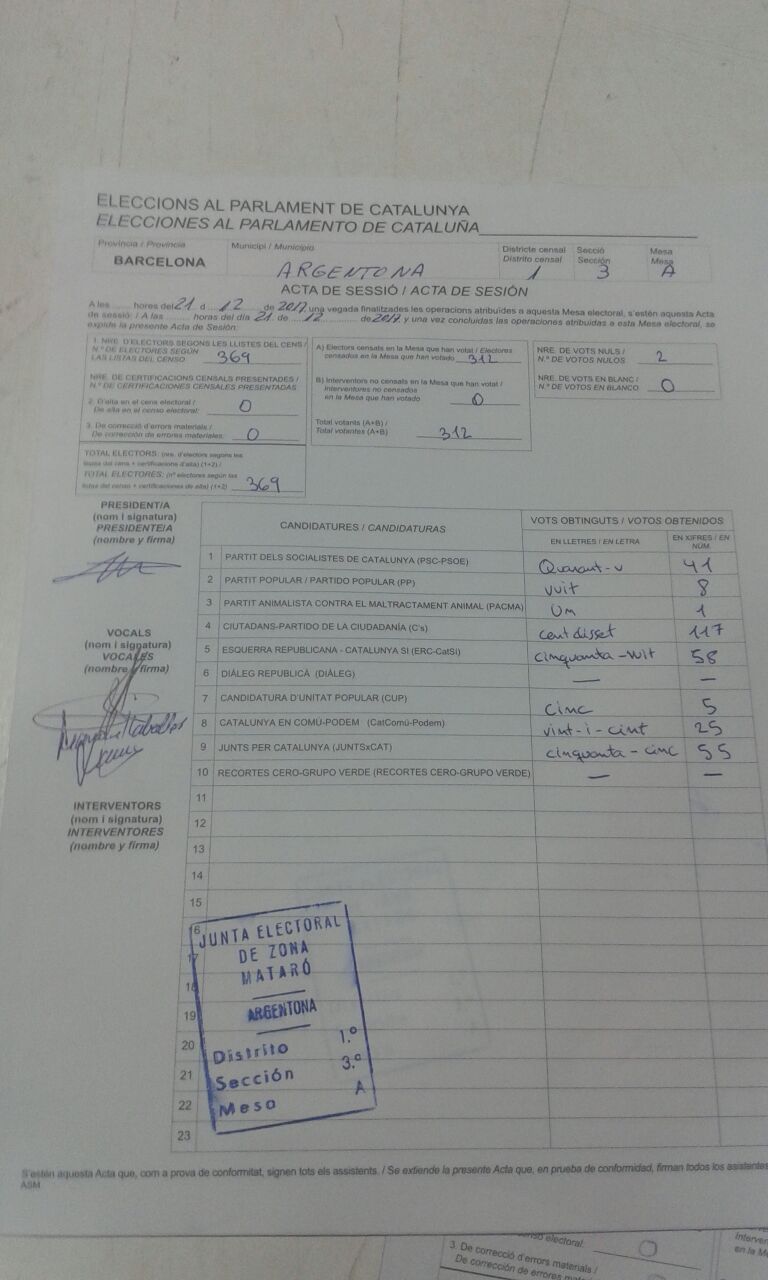 ELECCIONS AL PARLAMENT DE CATALUNYA
ELECCIONES AL PARLAMENTO DE CATALUÑA
Província / Provincia Municipi / Municipio Districte censal Secció Mesa
Distrito censal Sección Mesa
BARCELONA ARGENTONA 1 3 A
ACTA DE SESSIÓ / ACTA DE SESIÓN
A les ........ hores del 21 d 12 de 2017 una vegada finalitzades les operacions atribuïdes a aquesta Mesa electoral, s'estén aquesta Acta
de sessió: / A las ......... horas del día 21 de 12 de 2017 y una vez concluidas las operaciones atribuidas a esta Mesa electoral, se
expide la presente Acta de Sesión:
1. NRE. D'ELECTORS SEGONS LES LLISTES DEL CENS /
N.º DE ELECTORES SEGÚN
LAS LISTAS DEL CENSO 369
NRE. DE CERTIFICACIONS CENSALS PRESENTADES /
N.º DE CERTIFICACIONES CENSALES PRESENTADAS
2. D'alta en el cens electoral /
De alta en el censo electoral: 0
3. De correcció d'errors materials /
De corrección de errores materiales: 0
TOTAL ELECTORS: (nre. d'electors segons les
llistes del cens + certificacions d'alta) (1+2) /
TOTAL ELECTORES: (nº electores según las
listas del censo + certificaciones de alta) (1+2) 369
A) Electors censats en la Mesa que han votat / Electores
censados en la Mesa que han votado 312
B) Interventors no censats en la Mesa que han votat /
Interventores no censados
en la Mesa que han votado 0
Total votants (A+B) /
Total votantes (A+B) 312
NRE. DE VOTS NULS /
N.º DE VOTOS NULOS 2
NRE. DE VOTS EN BLANC /
N.º DE VOTOS EN BLANCO 0
PRESIDENT/A
(nom i signatura)
PRESIDENTE/A
(nombre y firma)
VOCALS
(nom i signatura)
VOCALES
(nombre y firma)
INTERVENTORS
(nom i signatura)
INTERVENTORES
(nombre y firma)
CANDIDATURES / CANDIDATURAS VOTS OBTINGUTS / VOTOS OBTENIDOS
EN LLETRES / EN LETRA EN XIFRES / EN NÚM.
1 PARTIT DELS SOCIALISTES DE CATALUNYA (PSC-PSOE) Quarant-u 41
2 PARTIT POPULAR / PARTIDO POPULAR (PP) vuit 8
3 PARTIT ANIMALISTA CONTRA EL MALTRACTAMENT ANIMAL (PACMA) Um 1
4 CIUTADANS-PARTIDO DE LA CIUDADANÍA (C's) cent disset 117
5 ESQUERRA REPUBLICANA - CATALUNYA SÍ (ERC-CatSí) cinquanta-vuit 58
6 DIÀLEG REPUBLICÀ (DIÀLEG) — —
7 CANDIDATURA D'UNITAT POPULAR (CUP) cinc 5
8 CATALUNYA EN COMÚ-PODEM (CatComú-Podem) vint-i-cint 25
9 JUNTS PER CATALUNYA (JUNTSxCAT) cinquanta-cinc 55
10 RECORTES CERO-GRUPO VERDE (RECORTES CERO-GRUPO VERDE) — —
11
12
13
14
15
16
17
18
19
20
21
22
23
JUNTA ELECTORAL
DE ZONA
MATARÓ
ARGENTONA
Distrito 1.º
Sección 3.ª
Mesa A
S'estén aquesta Acta que, com a prova de conformitat, signen tots els assistents. / Se extiende la presente Acta que, en prueba de conformidad, firman todos los asistentes
ASM
censo electoral: 0
3. De correcció d'errors materials /
De corrección de errores materiales
en la M